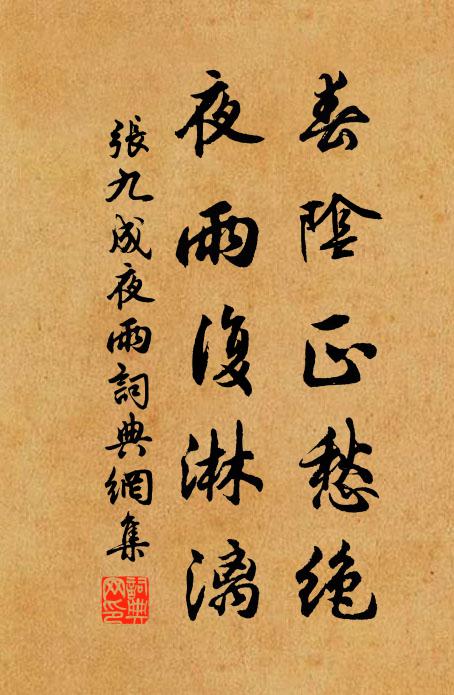 春陰正愁絶
夜雨復淋漓
張九成夜雨詞典網集
詞典網印